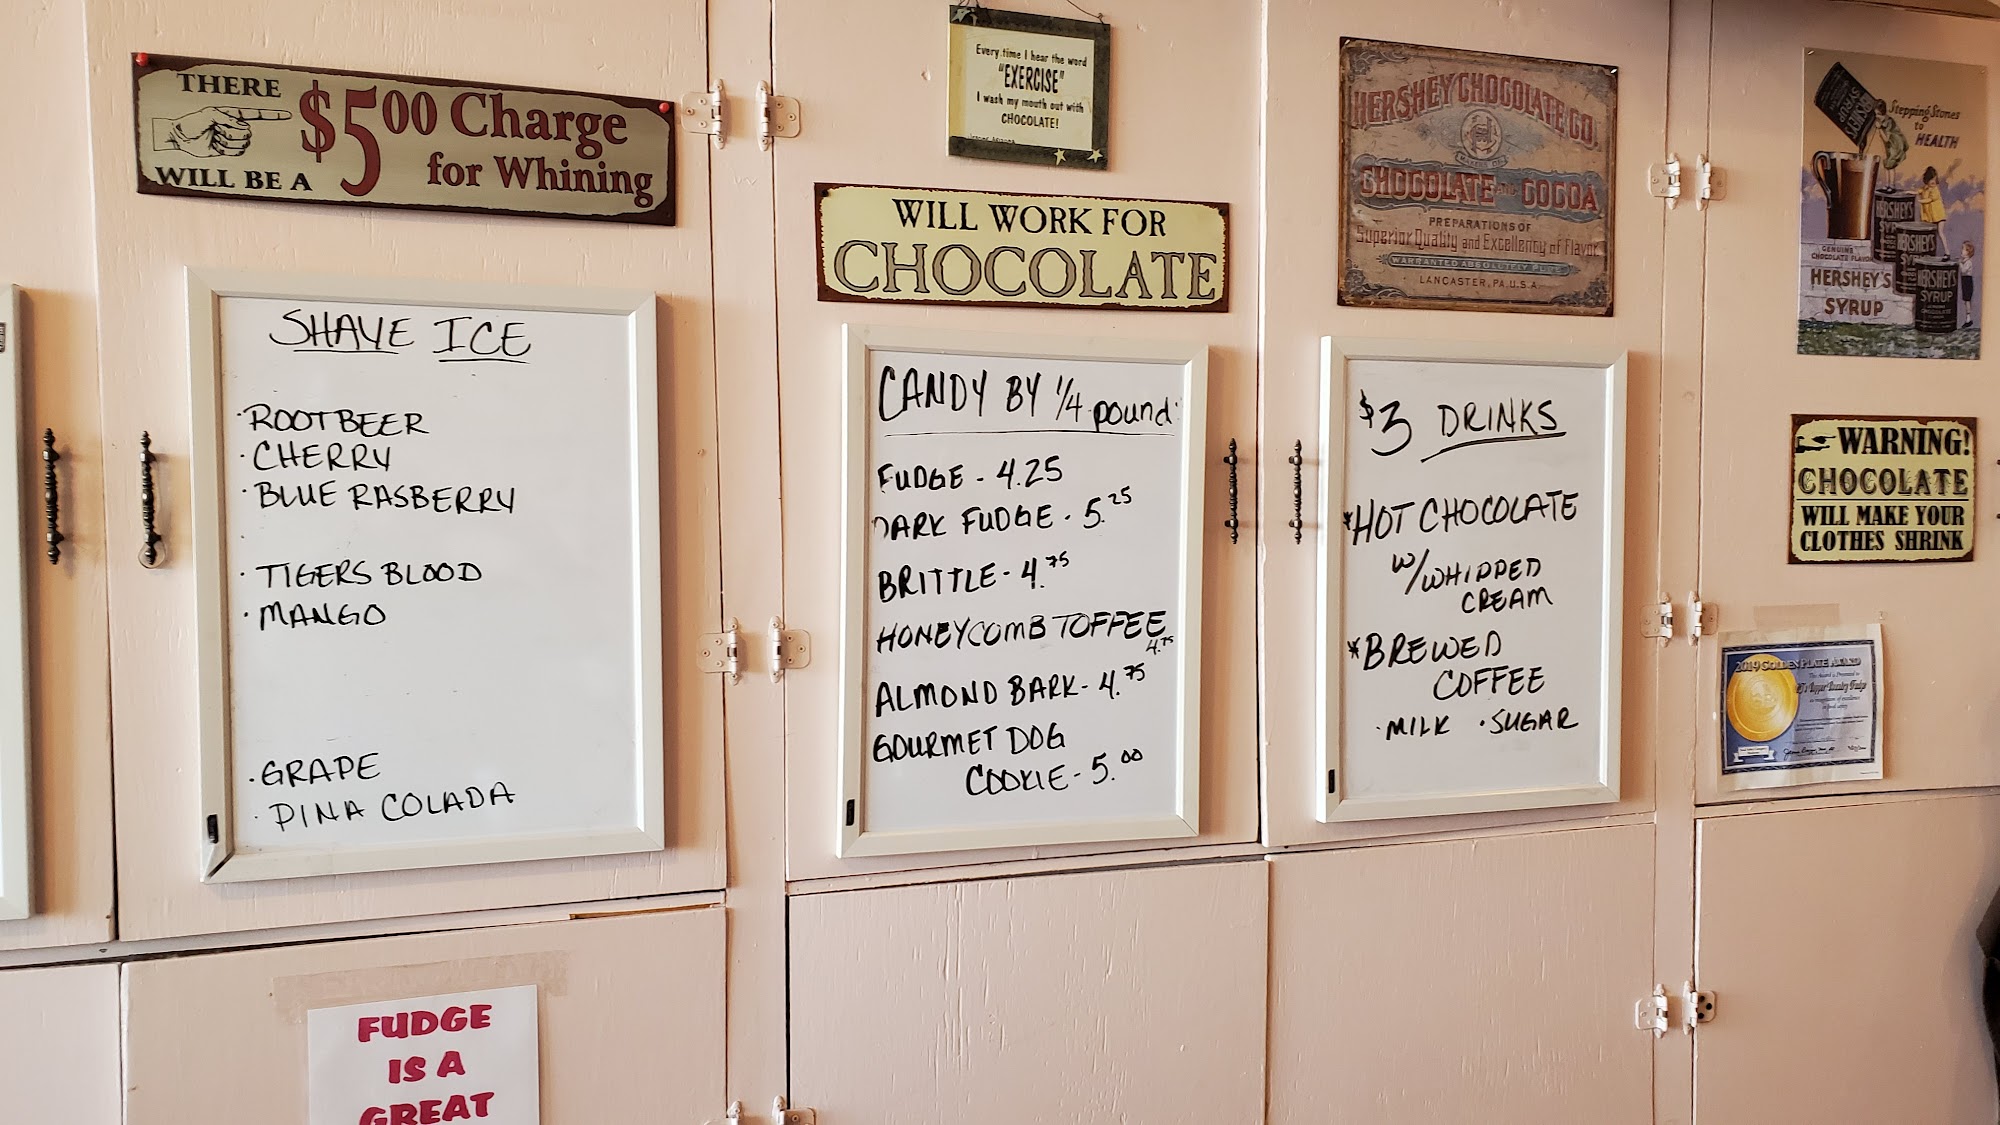 THERE
WILL BE A
$5.00 Charge
for Whining
SHAVE ICE
·ROOTBEER
·CHERRY
·BLUE RASBERRY
·TIGERS BLOOD
·MANGO
·GRAPE
·PINA COLADA
FUDGE
IS A
GREAT
Every time I hear the word
"EXERCISE"
I wash my mouth out with
CHOCOLATE!
WILL WORK FOR
CHOCOLATE
CANDY BY 1/4 pound:
FUDGE - 4.25
DARK FUDGE - 5.25
BRITTLE - 4.75
HONEYCOMB TOFFEE
4.75
ALMOND BARK - 4.75
GOURMET DOG
COOKIE - 5.00
HERSHEY CHOCOLATE CO.
CHOCOLATE AND COCOA
PREPARATIONS OF
Superior Quality and Excellency of Flavor
WARRANTED ABSOLUTELY PURE
LANCASTER, PA. U.S.A.
$3 DRINKS
*HOT CHOCOLATE
W/WHIPPED
CREAM
*BREWED
COFFEE
·MILK ·SUGAR
Stepping Stones
to
HEALTH
GENUINE
CHOCOLATE FLAVOR
HERSHEY'S
SYRUP
HERSHEY'S
HERSHEY'S
HERSHEY'S
SYRUP
WARNING!
CHOCOLATE
WILL MAKE YOUR
CLOTHES SHRINK
2019 GOLDEN PLATE AWARD